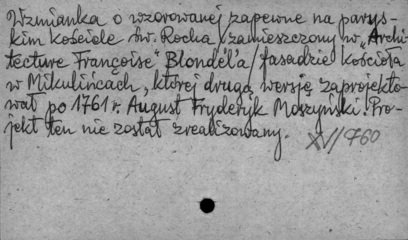 Wzmianka o wzorowanej zapewne na parys-
kim kościele św. Rocha /zamieszczony w „Archi-
tecture Françoise" Blondel'a/ fasadzie kościoła
w Mikulińcach, której drugą wersję zaprojekto-
wał po 1761 r. August Fryderyk Moszyński. Pro-
jekt ten nie został zrealizowany.
XV/960